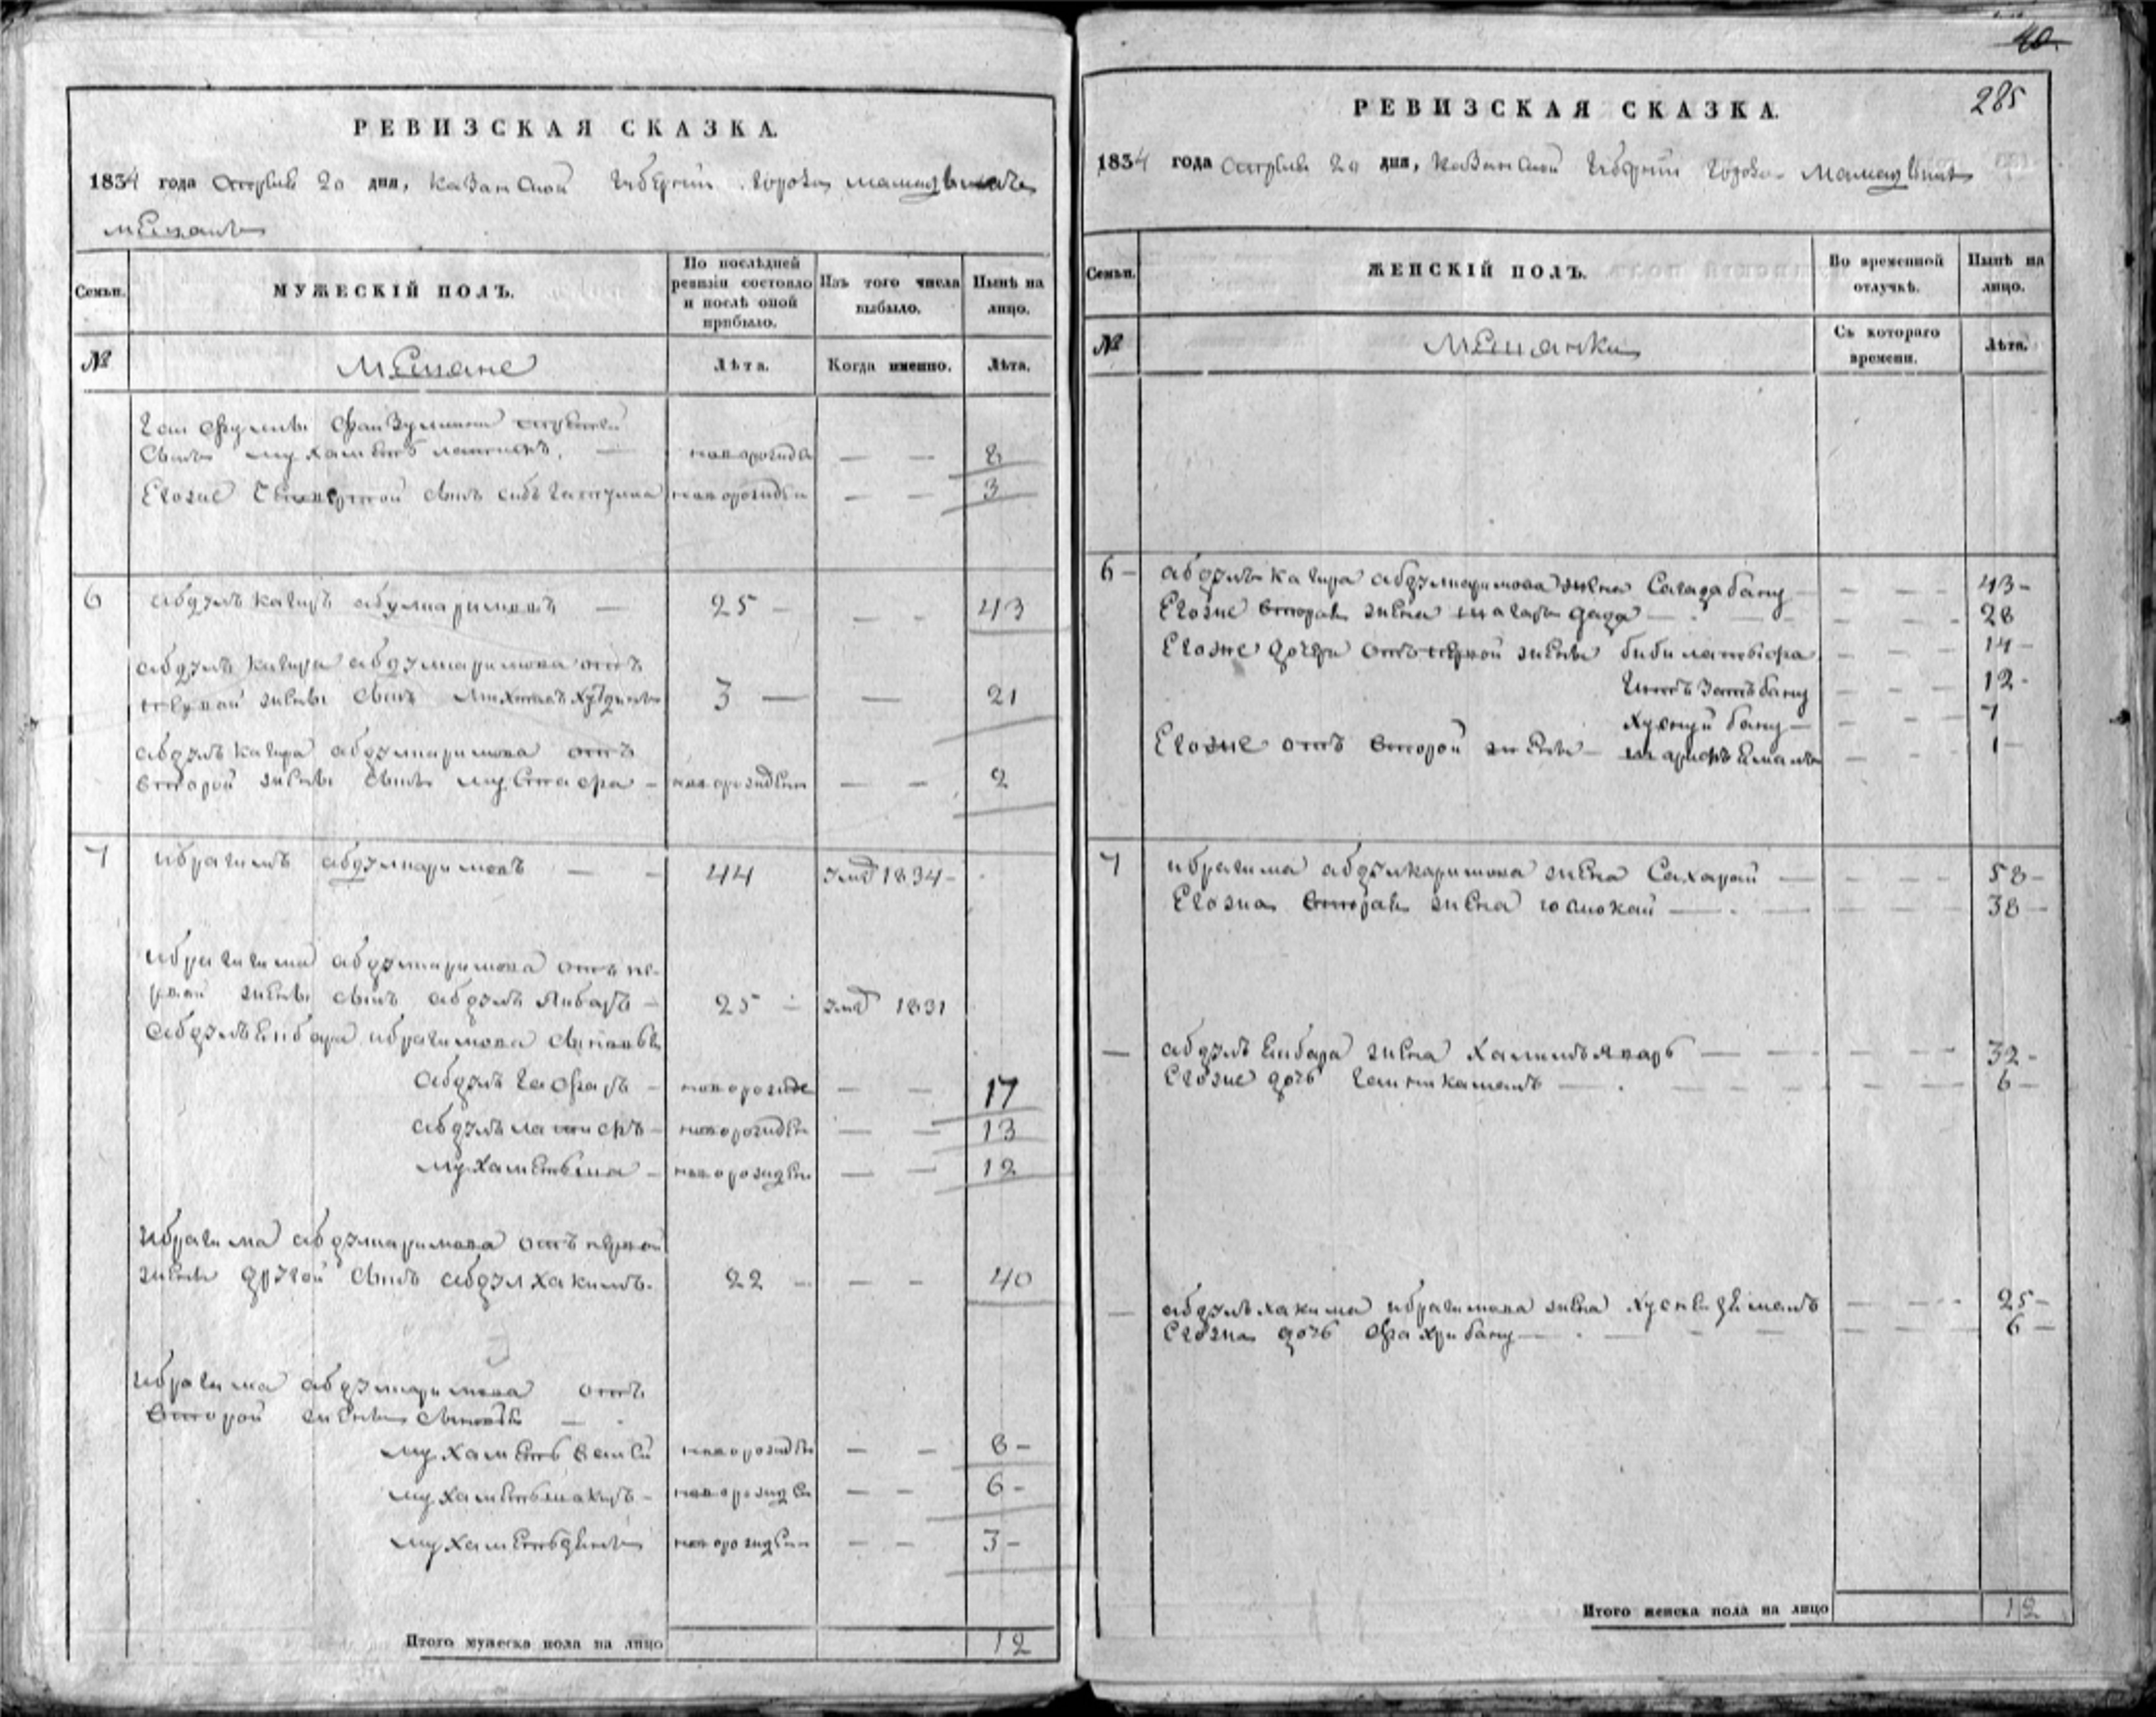 РЕВИЗСКАЯ СКАЗКА.
1834 года Апреля 20 дня, Казанской Губернии города Мамадыша
мещанъ
Семьи.
МУЖЕСКІЙ ПОЛЪ.
По послѣдней ревизіи состояло и послѣ оной прибыло.
Изъ того числа выбыло.
Нынѣ на лицо.
№
Мещане
Лѣта.
Когда именно.
Лѣта.
сынъ мухаметъ латифъ, — новорожде — — 8
Егоже четвертой сынъ новорожден — — 3
6 абдулъ кагиръ абдулкаримовъ — 25 — — — 43
абдулъ кагира абдулкаримова отъ
первой жены сынъ 3 — — 21
абдулъ кагира абдулкаримова отъ
второй жены сынъ мустафа — новорожден — — 2
7 ибрагимъ абдулкаримовъ — — 44 умр 1834 —
ибрагима абдулкаримова отъ пе-
рвой жены сынъ абдулъ Янбаръ — 25 — умр 1831
абдулъ Енбара ибрагимова сыновья
абдулъ гафаръ — новорожде — — 17
абдулъ латифъ — новорожден — — 13
мухаметьша — новорожден — — 12
ибрагима абдулкаримова отъ первой
жены другой сынъ абдул хакимъ. 22 — — — 40
ибрагима абдулкаримова отъ
второй жены сыновья —
мухаметь вали новорожден — — 8 —
мухаметьшакиръ — новорожден — — 6 —
мухаметьдинъ новорожден — — 3 —
Итого мужеска пола на лицо 12
40.
285
РЕВИЗСКАЯ СКАЗКА.
1834 года Апреля 20 дня, Казанской Губернии города Мамадыша
Семьи.
ЖЕНСКІЙ ПОЛЪ.
Во временной отлучкѣ.
Нынѣ на лицо.
№
Мещанки
Съ котораго времени.
Лѣта.
6 — абдулъ кагира абдулкаримова жена Сагадабану — — — 43 —
Егоже вторая жена — — — 28
Егоже дочери отъ первой жены биби латифа — — — 14 —
бану — — — 12 —
Хуснуй бану — — — — 7
Егоже отъ второй жены — — — 1 —
7 ибрагима абдулкаримова жена Сахарай — — — — 58 —
Егожа вторая жена — — — 38 —
— абдулъ Енбара жена — — — 32 —
Егоже дочь — — — 6 —
— абдулъ хакима ибрагимова жена — — — 25 —
Егожа дочь Фахрибану — — — 6 —
Итого женска пола на лицо 12